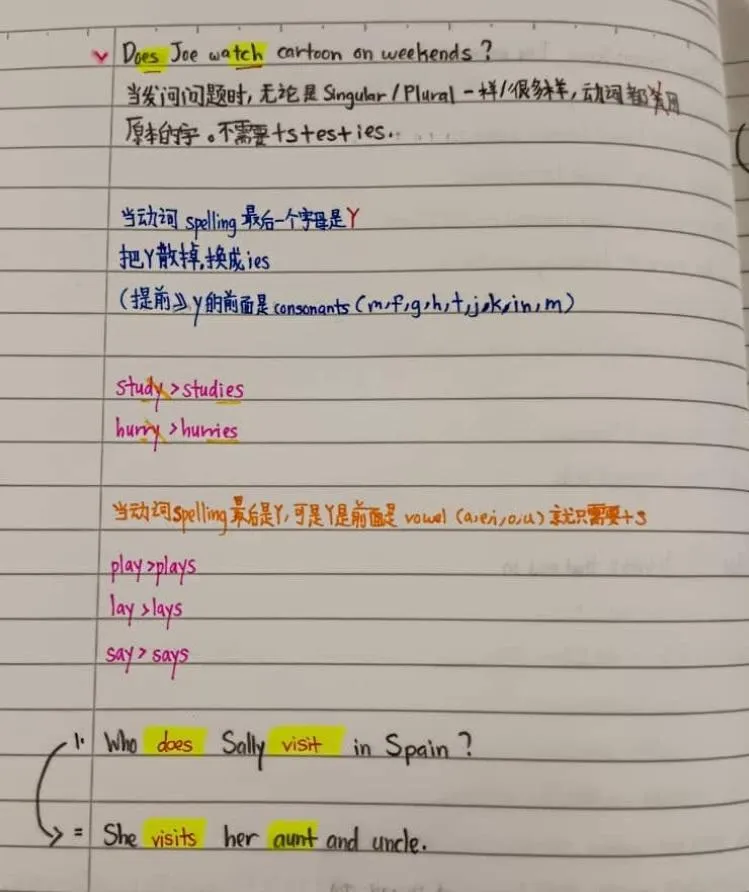 Does Joe watch cartoon on weekends?
当发问问题时,无论是Singular/Plural一样/很多样,动词都用
原本的字。不需要+s+es+ies.
当动词 spelling 最后一个字母是Y
把Y散掉,换成ies
(提前》Y的前面是consonants (m,f,g,h,t,j,k,in,m)
study>studies
hurry>hurries
当动词spelling最后是Y,可是Y是前面是 vowel (a,e,i,o,u) 就只需要+s
play>plays
lay>lays
say>says
1. Who does Sally visit in Spain?
= She visits her aunt and uncle.